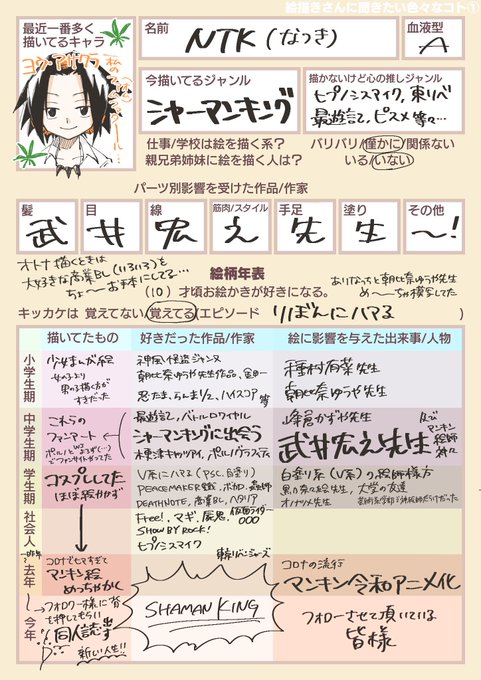 絵描きさんに聞きたい色々なコト①
最近一番多く
描いてるキャラ
ヨウ・アサクラ
名前
NTK(なつき)
血液型
A
今描いてるジャンル
シャーマンキング
描かないけど心の推しジャンル
ヒプノシスマイク,東リベ
最遊記,ピスメ等々…
仕事/学校は絵を描く系?
バリバリ/僅かに/関係ない
親兄弟姉妹に絵を描く人は?
いる/いない
パーツ別影響を受けた作品/作家
髪
武
目
井
線
宏
筋肉/スタイル
え
手足
先
塗り
生
その他
〜!
オトナ描くときは
大好きな商業BL(いろいろ)を
ちょ〜〜お手本にしてる…
絵柄年表
ありなっちと朝比奈ゆうや先生
め〜〜ちゃ模写してた
(10)才頃お絵かきが好きになる。
キッカケは 覚えてない/覚えてる(エピソード りぼんにハマる )
描いてたもの
好きだった作品/作家
絵に影響を与えた出来事/人物
小学生期
少女まんが絵
女の子より
男の子描く方が
すきだった
神風怪盗ジャンヌ
朝比奈ゆうや先生作品、
忍たま、らんま1/2、ハイスコア 等
種村有菜先生
朝比奈ゆうや先生
中学生期
これらの
ファンアート
最遊記,バトルロワイヤル
シャーマンキングに出会う
木更津キャッツアイ,ポルノグラフィティ
峰倉かずや先生
武井宏之先生
マンキン
絵師
神々
学生期
コスプレしてた
ほぼ絵かかず
V系にハマる(PSC,白塗り)
PEACEMAKER鐵,ボカロ,蟲師
DEATHNOTE,商業BL,ヘタリア
白塗り系(V系)の絵師様方
黒乃奈々絵先生,大学の友達
オノナツメ先生
社会人
Free!,マギ,屍鬼,仮面ライダー
OOO
SHOW BY ROCK!
ヒプノシスマイク
東京リベンジャーズ
一昨年
去年
コロナでヒマすぎて
マンキン絵
めっちゃかく
コロナの流行
マンキン令和アニメ化
今年
フォロワー様に背
を押してもらい
同人誌出す
新しい人生!!
SHAMAN KING
フォローさせて頂いている
皆様